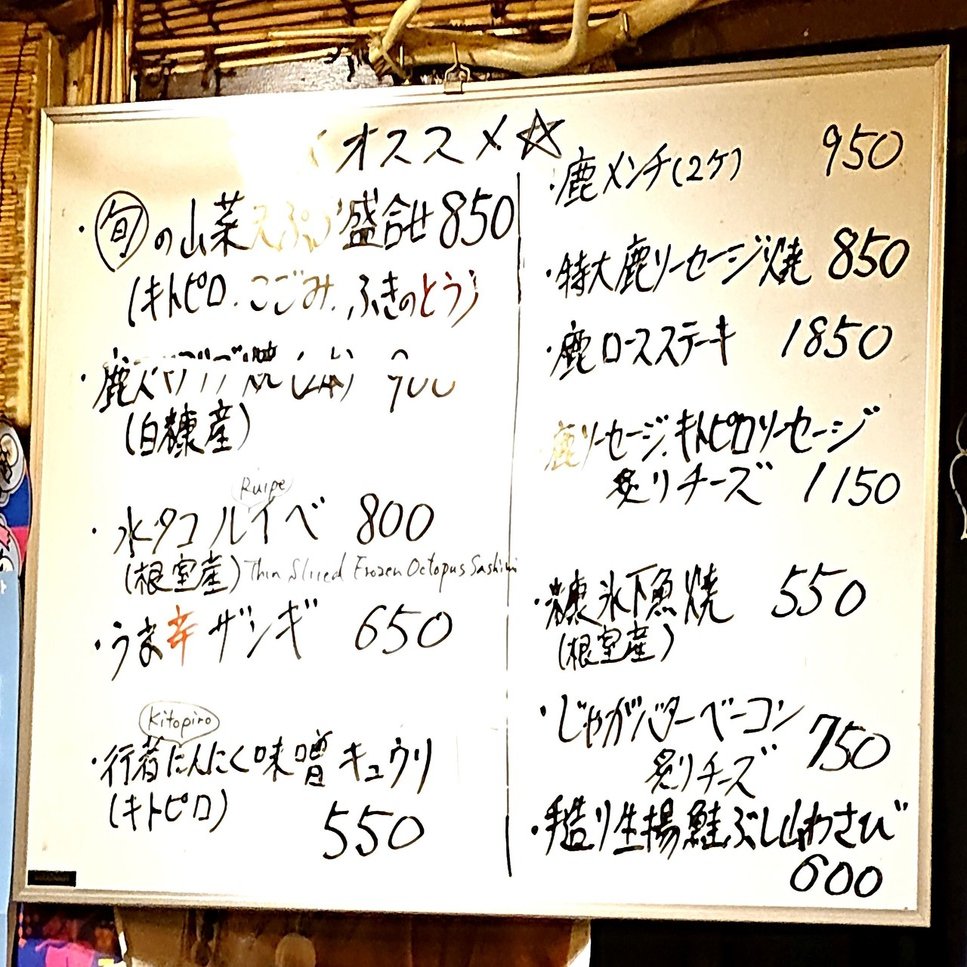 オススメ☆
・旬の山菜天ぷら盛合せ 850
(キトピロ、こごみ、ふきのとう)
・鹿 焼 900
(白糠産)
Ruipe
・水タコルイベ 800
(根室産) Thin Sliced Frozen Octopus Sashimi
・うま辛ザンギ 650
Kitopiro
・行者にんにく味噌キュウリ
(キトピロ)
550
・鹿メンチ(2ケ) 950
・特大鹿ソーセージ焼 850
・鹿ロースステーキ 1850
鹿ソーセージ、キトピロソーセージ
炙りチーズ 1150
・糠氷下魚焼 550
(根室産)
・じゃがバターベーコン
炙りチーズ 750
・手造り生揚鮭ぶし山わさび
600